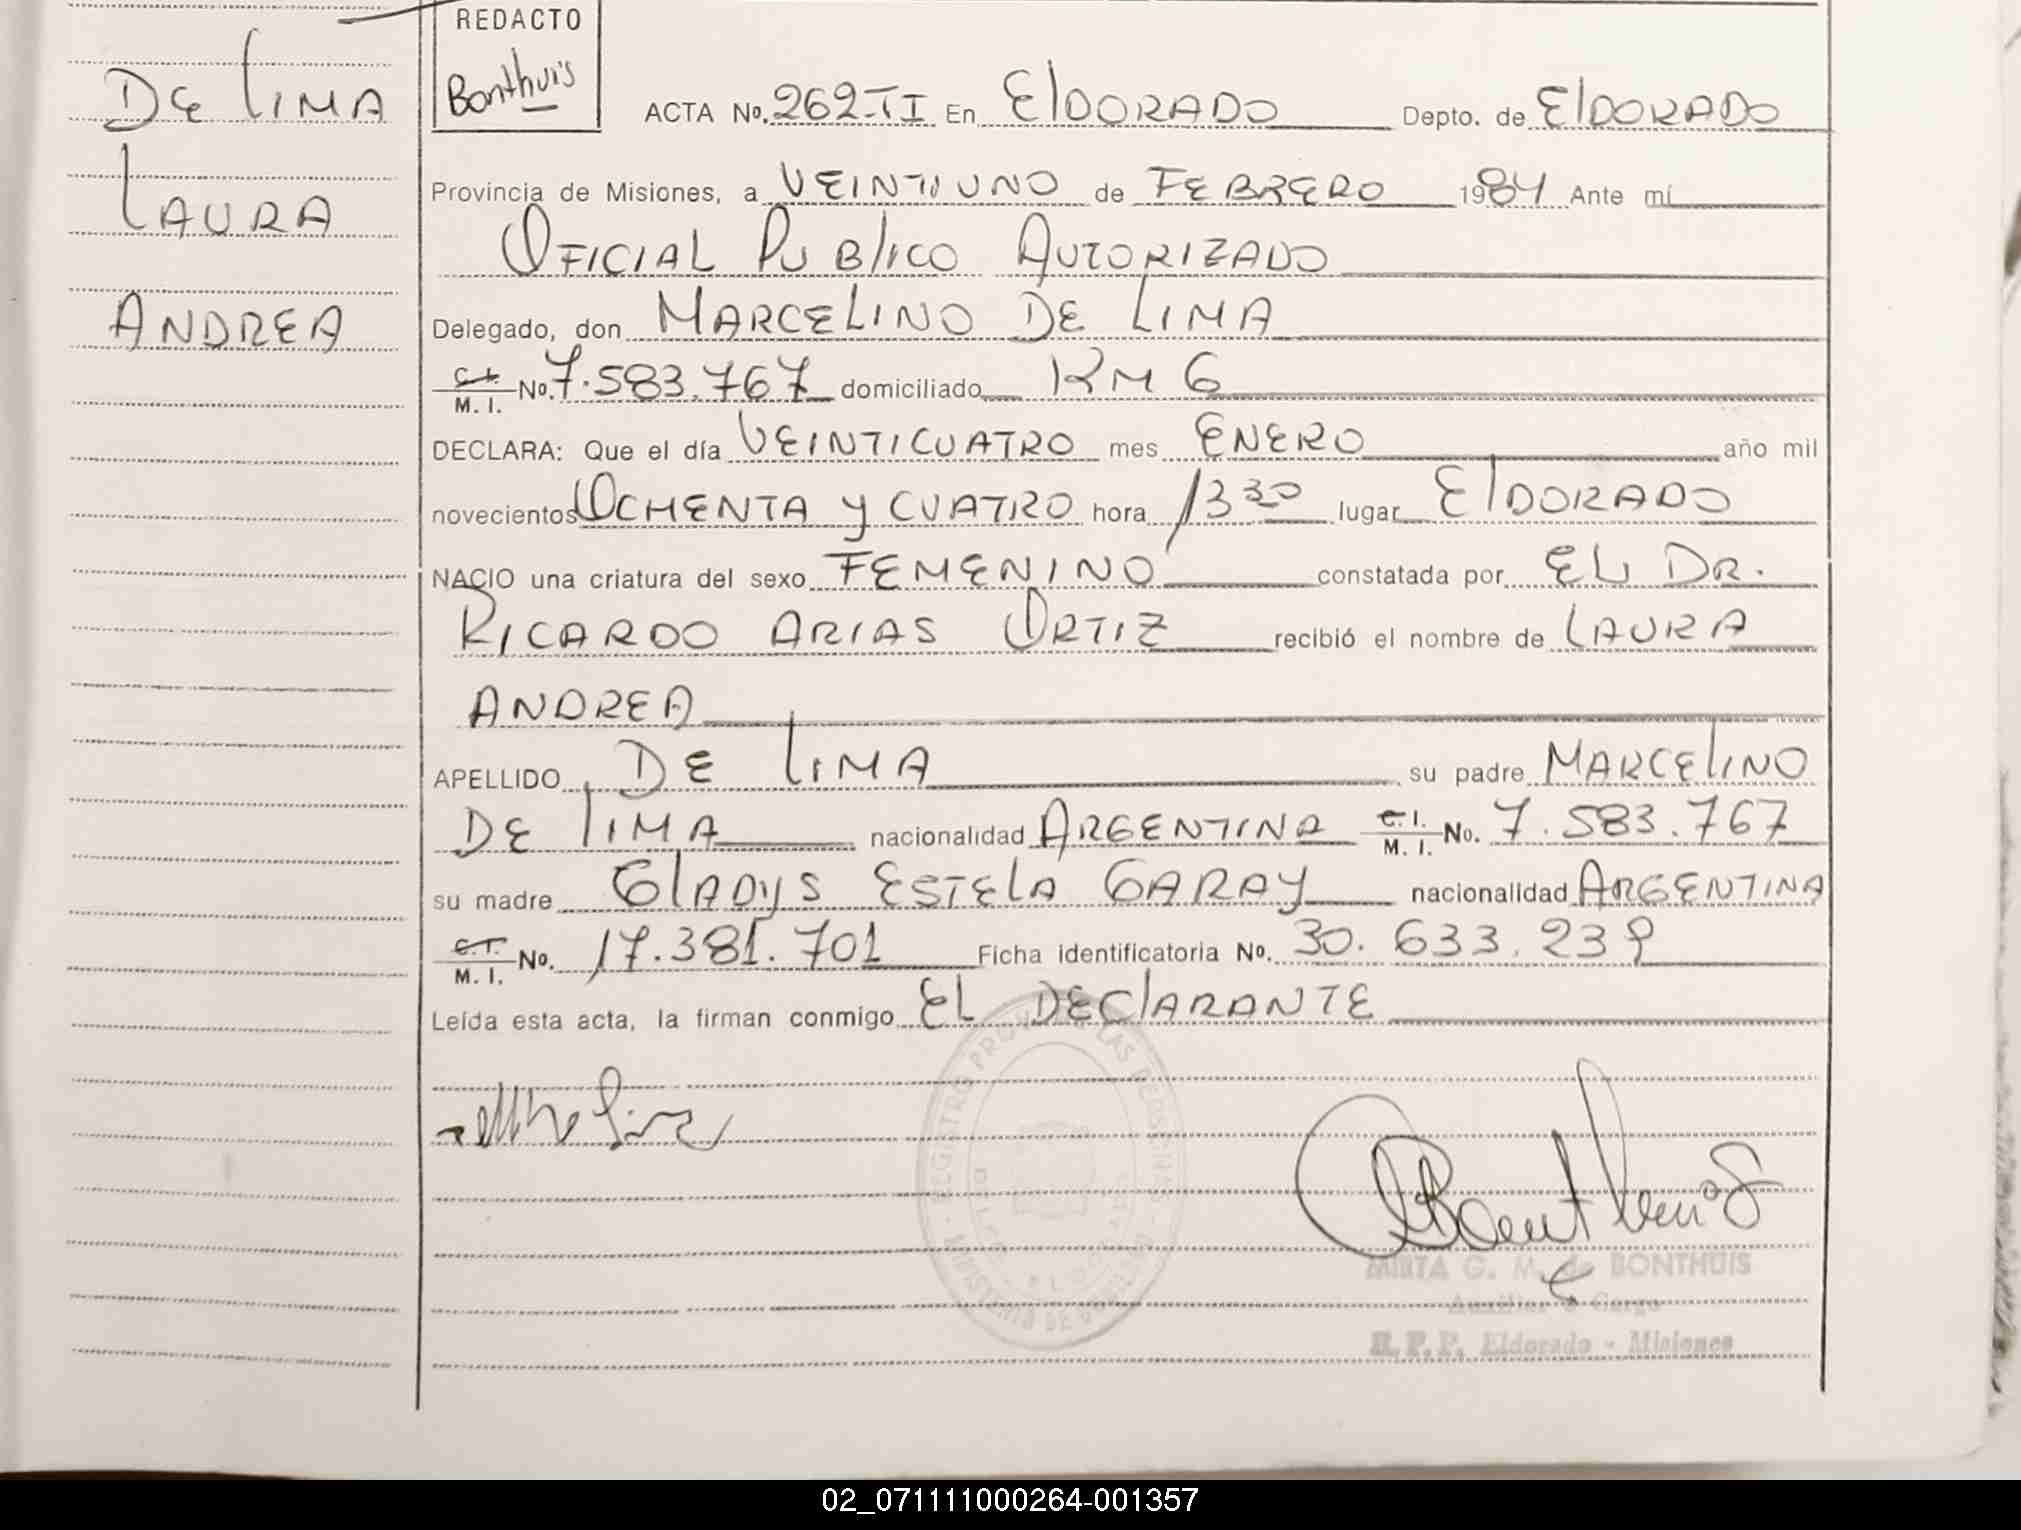 REDACTO
Bonthuis
DE LIMA
LAURA
ANDREA
ACTA No. 262-TI En ElDORADO Depto. de ElDORADO
Provincia de Misiones, a VEINTIUNO de FEBRERO 1984 Ante mí
OFICIAL PUBlICO AUTORIZADO
Delegado, don MARCELINO DE LIMA
C. I. M. I. No. 7.583.767 domiciliado KM 6
DECLARA: Que el día VEINTICUATRO mes ENERO año mil
novecientos OCHENTA Y CUATRO hora 13 30 lugar ElDORADO
NACIO una criatura del sexo FEMENINO constatada por EL DR.
RICARDO ARIAS ORTIZ recibió el nombre de LAURA
ANDREA
APELLIDO DE LIMA su padre MARCElINO
DE LIMA nacionalidad ARGENTINA C. I. M. I. No. 7.583.767
su madre GlADYS ESTElA GARAY nacionalidad ARGENTINA
C. I. M. I. No. 17.381.701 Ficha identificatoria No. 30.633.239
Leída esta acta, la firman conmigo EL DEClARANTE
REGISTRO PROV. DE LAS PERSONAS
MINISTERIO DE GOBIERNO
Bonthuis
MIRTA G. M. de BONTHUIS
Auxiliar a Cargo
R.P.P. Eldorado - Misiones
02_071111000264-001357